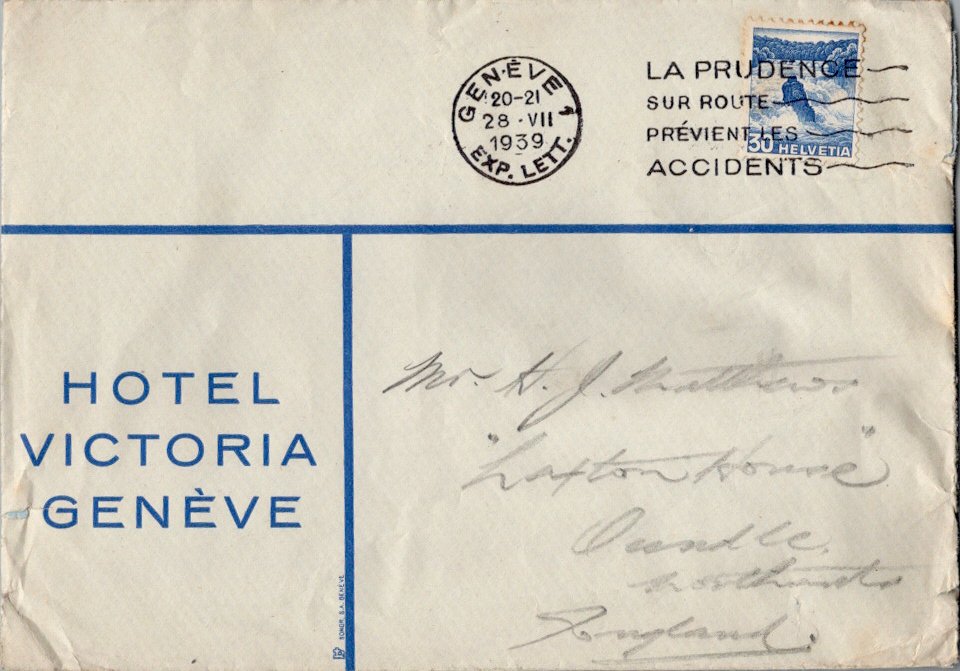 GENÈVE 1
20-21
28 · VII
1939
EXP. LETT.
LA PRUDENCE
SUR ROUTE
PRÉVIENT LES
ACCIDENTS
30 HELVETIA
HOTEL
VICTORIA
GENÈVE
SONOR. S.A. GENÈVE
Mr. H. J. Matthews
"Laxton House"
Oundle,
Northants
England.